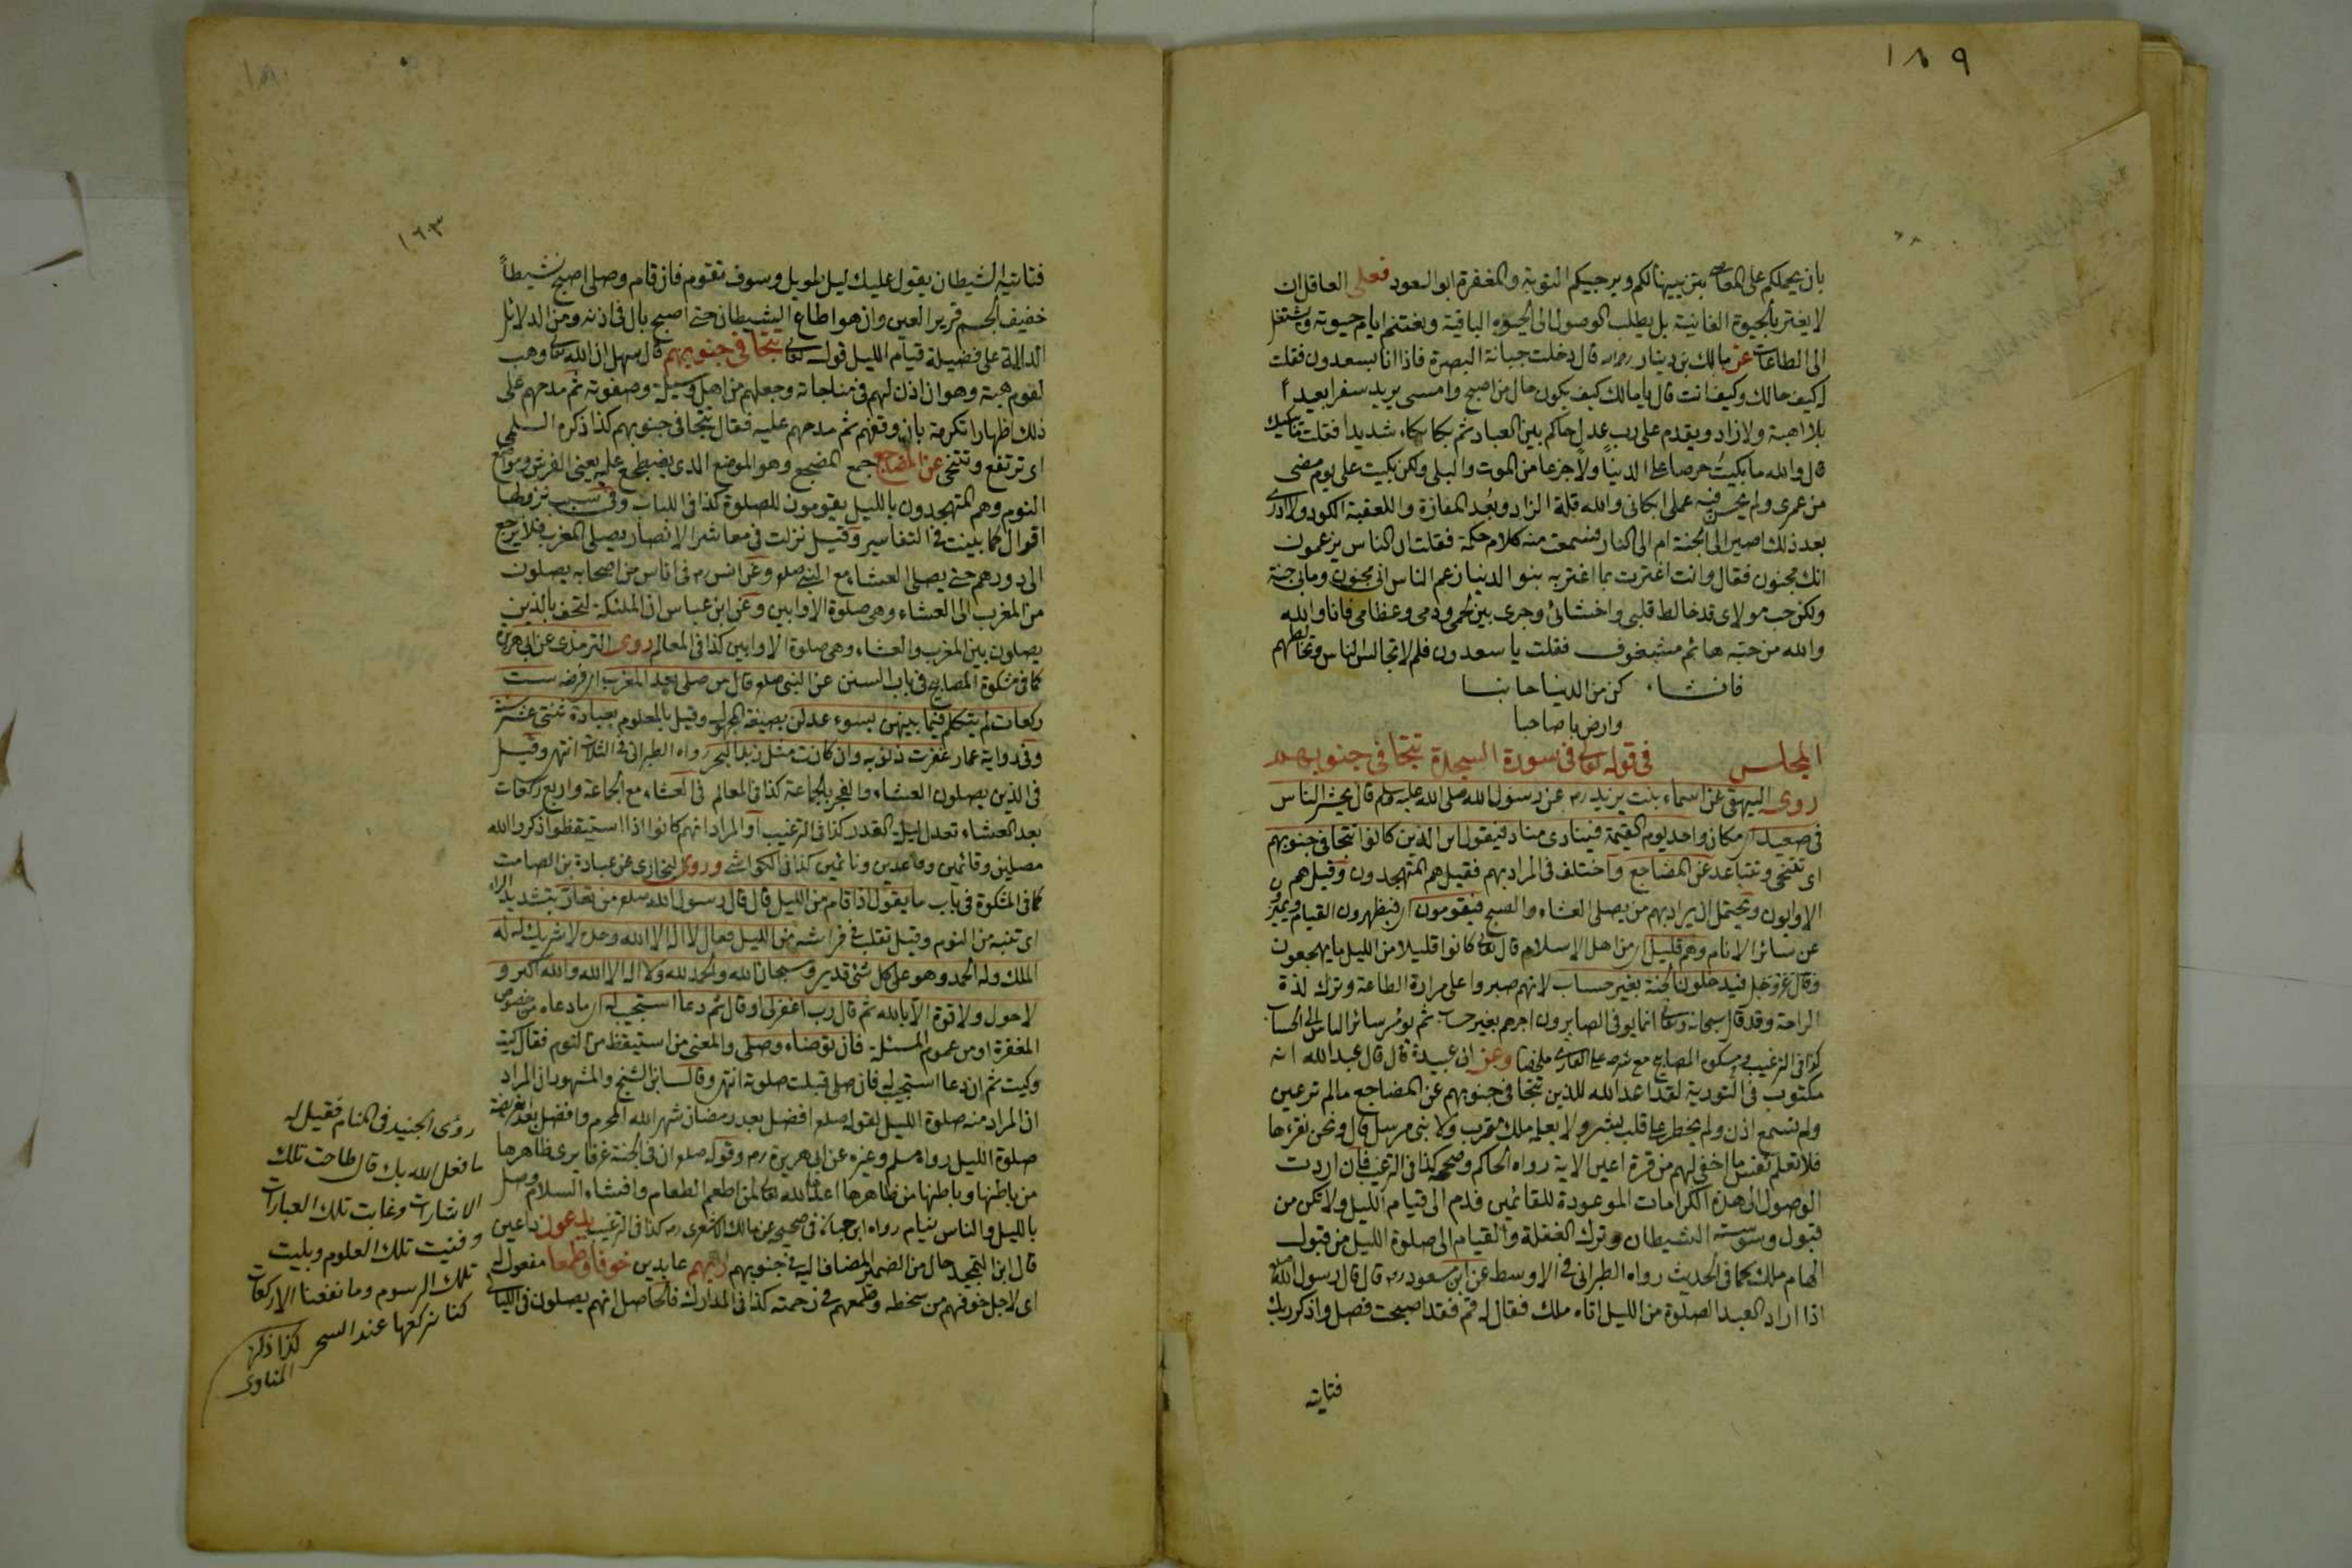 ١٨٩
بان يحملكم على المعاصي بتزيينها لكم ويرجيكم التوبة والمغفرة ابو السعود فعلى العاقل ان
لا يغتر بالحيوة الفانية بل يطلب الوصول الى الحيوة الباقية ويغتنم ايام حيوته ويشتغل
الى الطاعات عن مالك بن دينار رحمه الله قال دخلت جبانة البصرة فاذا انا بسعدون فقلت
له كيف حالك وكيف انت قال يا مالك كيف يكون حال من اصبح وامسى يريد سفرا بعيدا
بلا اهبة ولا زاد ويقدم على رب عدل حاكم بين العباد ثم بكا بكاء شديدا فقلت ما يبكيك
قال والله ما بكيت حرصا على الدنيا ولا جزعا من الموت والبلى ولكن بكيت على يوم مضى
من عمرى ولم يحسن فيه عملى ابكانى والله قلة الزاد وبعد المفازة والعقبة الكود ولا ادرى
بعد ذلك اصير الى الجنة ام الى النار فسمعت منه كلام حكمة فقلت ان الناس يزعمون
انك مجنون فقال وانت اغتررت بما اغتر به بنو الدنيا زعم الناس انى مجنون وما بى جنة
ولكن حب مولاى قد خالط قلبى واحشائى وجرى بين لحمى ودمى وعظامى فانا والله
والله من حبه هائم مشغوف فقلت يا سعدون فلم لا تجالس الناس وتخالطهم
فانشاء كن من الدنيا جانبا
وارض يا صاحبا
المجلس فى قوله تعالى فى سورة السجدة تتجافى جنوبهم
روى البيهقى عن اسماء بنت يزيد رض عن رسول الله صلى الله عليه وسلم قال يحشر الناس
فى صعيد اى مكان واحد يوم القيمة فينادى مناد فيقول اين الذين كانوا تتجافى جنوبهم
اى تتنحى وتتباعد عن المضاجع واختلف فى المراد بهم فقيل هم المتهجدون وقيل هم
الاوابون ويحتمل ان يراد بهم من يصلى العشاء والصبح فيقومون اى فيظهرون القيام ويميزون
عن سائر الانام وهم قليل اى من اهل الاسلام قال تعالى كانوا قليلا من الليل ما يهجعون
وقال عز وجل فيدخلون الجنة بغير حساب لانهم صبروا على مرارة الطاعة وترك لذة
الراحة وقد قال سبحانه وتعالى انما يوفى الصابرون اجرهم بغير حساب ثم يؤمر سائر الناس الى الحساب
كذا فى الترغيب ومشكوة المصابيح مع شرحه على القارى ملخصا وعن ابى عبيدة قال قال عبد الله انه
مكتوب فى التورية لقد اعد الله للذين تتجافى جنوبهم عن المضاجع ما لم تر عين
ولم تسمع اذن ولم يخطر على قلب بشر ولا يعلمه ملك مقرب ولا نبى مرسل قال ونحن نقرءها
فلا تعلم نفس ما اخفى لهم من قرة اعين الاية رواه الحاكم وصححه كذا فى الترغيب فان اردت
الوصول الى هذه الكرامات الموعودة للقائمين فدم الى قيام الليل ولا تكن من
قبول وسوسة الشيطان وترك الغفلة والقيام الى صلوة الليل من قبول
الهام ملك كما فى الحديث رواه الطبرانى فى الاوسط عن ابن مسعود رض قال قال رسول الله صلعم
اذا اراد العبد الصلوة من الليل اتاه ملك فقال له قم فقد اصبحت فصل واذكر ربك
فتاتيه
١٦٣
فتاتيه الشيطان يقول عليك ليل طويل وسوف تقوم فان قام وصلى اصبح نشيطاً
خفيف الجسم قرير العين وان هو اطاع الشيطان حتى اصبح بال فى اذنه ومن الدلائل
الدالة على فضيلة قيام الليل قوله تعالى تتجافى جنوبهم قال سهل ان الله تعالى وهب
لقوم هبة وهو ان اذن لهم فى مناجاته وجعلهم من اهل وسيلة وصفوته ثم مدحهم على
ذلك اظهارا لكرمه بان وفقهم ثم مدحهم عليه فقال تتجافى جنوبهم كذا ذكره السلمى
اى ترتفع وتتنحى عن المضاجع جمع المضجع وهو الموضع الذى يضطجع عليه يعنى الفرش ومواضع
النوم وهم المتهجدون بالليل يقومون للصلوة كذا فى اللباب وفى سبب نزولها
اقوال كما بينت فى التفاسير وقيل نزلت فى معاشر الانصار يصلى المغرب فلا يرجع
الى دورهم حتى يصلى العشاء مع النبى صلعم وعن انس رض فى اناس من اصحابه يصلون
من المغرب الى العشاء وهى صلوة الاوابين وعن ابن عباس ان الملئكة لتحف بالذين
يصلون بين المغرب والعشاء وهى صلوة الاوابين كذا فى المعالم روى الترمذى عن ابى هريرة
كما فى مشكوة المصابيح فى باب السنن عن النبى صلعم قال من صلى بعد المغرب اى فرضه ست
ركعات لم يتكلم فيما بينهن بسوء عدلن بصيغة المجهول وقيل بالمعلوم بعبادة ثنتى عشرة سنة
وفى رواية عمار غفرت ذنوبه وان كانت مثل زبد البحر رواه الطبرانى فى الثلاث انتهى وقيل
فى الذين يصلون العشاء والفجر بالجماعة كذا فى المعالم فى العشاء مع الجماعة واربع ركعات
بعد العشاء تعدل ليلة القدر كذا فى الترغيب او المراد انهم كانوا اذا استيقظوا ذكروا الله
مصلين وقائمين وقاعدين ونائمين كذا فى الكواشى وروى البخارى عن عبادة بن الصامت
كما فى المشكوة فى باب ما يقول اذا قام من الليل قال قال رسول الله صلعم من تعار بتشديد الراء
اى تنبه من النوم وقيل تقلب فى فراشه من الليل فقال لا اله الا الله وحده لا شريك له له
الملك وله الحمد وهو على كل شئ قدير وسبحان الله والحمد لله ولا اله الا الله والله اكبر و
لا حول ولا قوة الا بالله ثم قال رب اغفر لى او قال ثم دعا استجيب له اى ما دعاه من خصوص
المغفرة او من عموم المسئلة فان توضاء وصلى والمعنى من استيقظ من النوم فقال كيت
وكيت ثم ان دعا استجيب له فان صلى قبلت صلوته انتهى وقال ابن الشيخ والمشهور ان المراد
ان المراد منه صلوة الليل لقوله صلعم افضل بعد رمضان شهر الله المحرم وافضل بعد الفريضة
صلوة الليل رواه مسلم وغيره عن ابى هريرة رض وقوله صلعم ان فى الجنة غرفا يرى ظاهرها
من باطنها وباطنها من ظاهرها اعدها الله تعالى لمن اطعم الطعام وافشاء السلام وصلى
بالليل والناس نيام رواه ابن حبان فى صحيحه عن مالك الاشعرى رض كذا فى الترغيب يدعون داعين
قال ابن التمجيد حال من الضمير المضاف اليه فى جنوبهم ربهم عابدين خوفا وطمعا مفعول له
اى لاجل خوفهم من سخطه وطمعهم فى رحمته كذا فى المدارك فالحاصل انهم يصلون فى الليالى
رؤى الجنيد فى المنام فقيل له
ما فعل الله بك قال طاحت تلك
الاشارات وغابت تلك العبارات
وفنيت تلك العلوم وبليت
تلك الرسوم وما نفعنا الا ركعات
كنا نركعها عند السحر كذا ذكره
المناوى